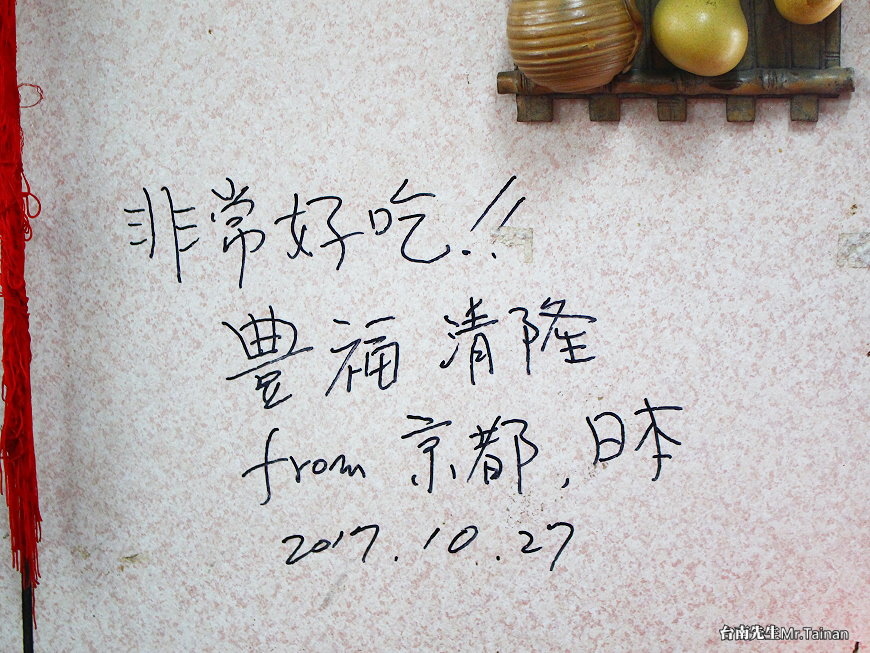 非常好吃!!
豊福 清隆
from 京都, 日本
2017.10.27
台南先生Mr.Tainan